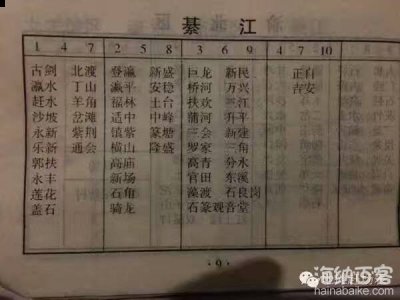 綦 江
1 4 7 2 5 8 3 6 9 4 7 10
古剑 北渡 登瀛 新盛 巨龙 新民 正自
瀛水 丁山 瀛平 安稳 桥河 万兴 吉安
赶水 羊角 福林 土台 扶欢 三江
沙坡 岔滩 适中 中峰 蒲河 升平
永新 紫荆 镇紫 篆塘 三会 新建
乐新 通会 横山 隆盛 罗家 三角
郭扶 高庙 高青 分水
永丰 新场 官田 东溪
莲花 石角 藻渡 石良岗
盖石 骑龙 石篆观音堂
·9·
海纳百客
hainabaike.com